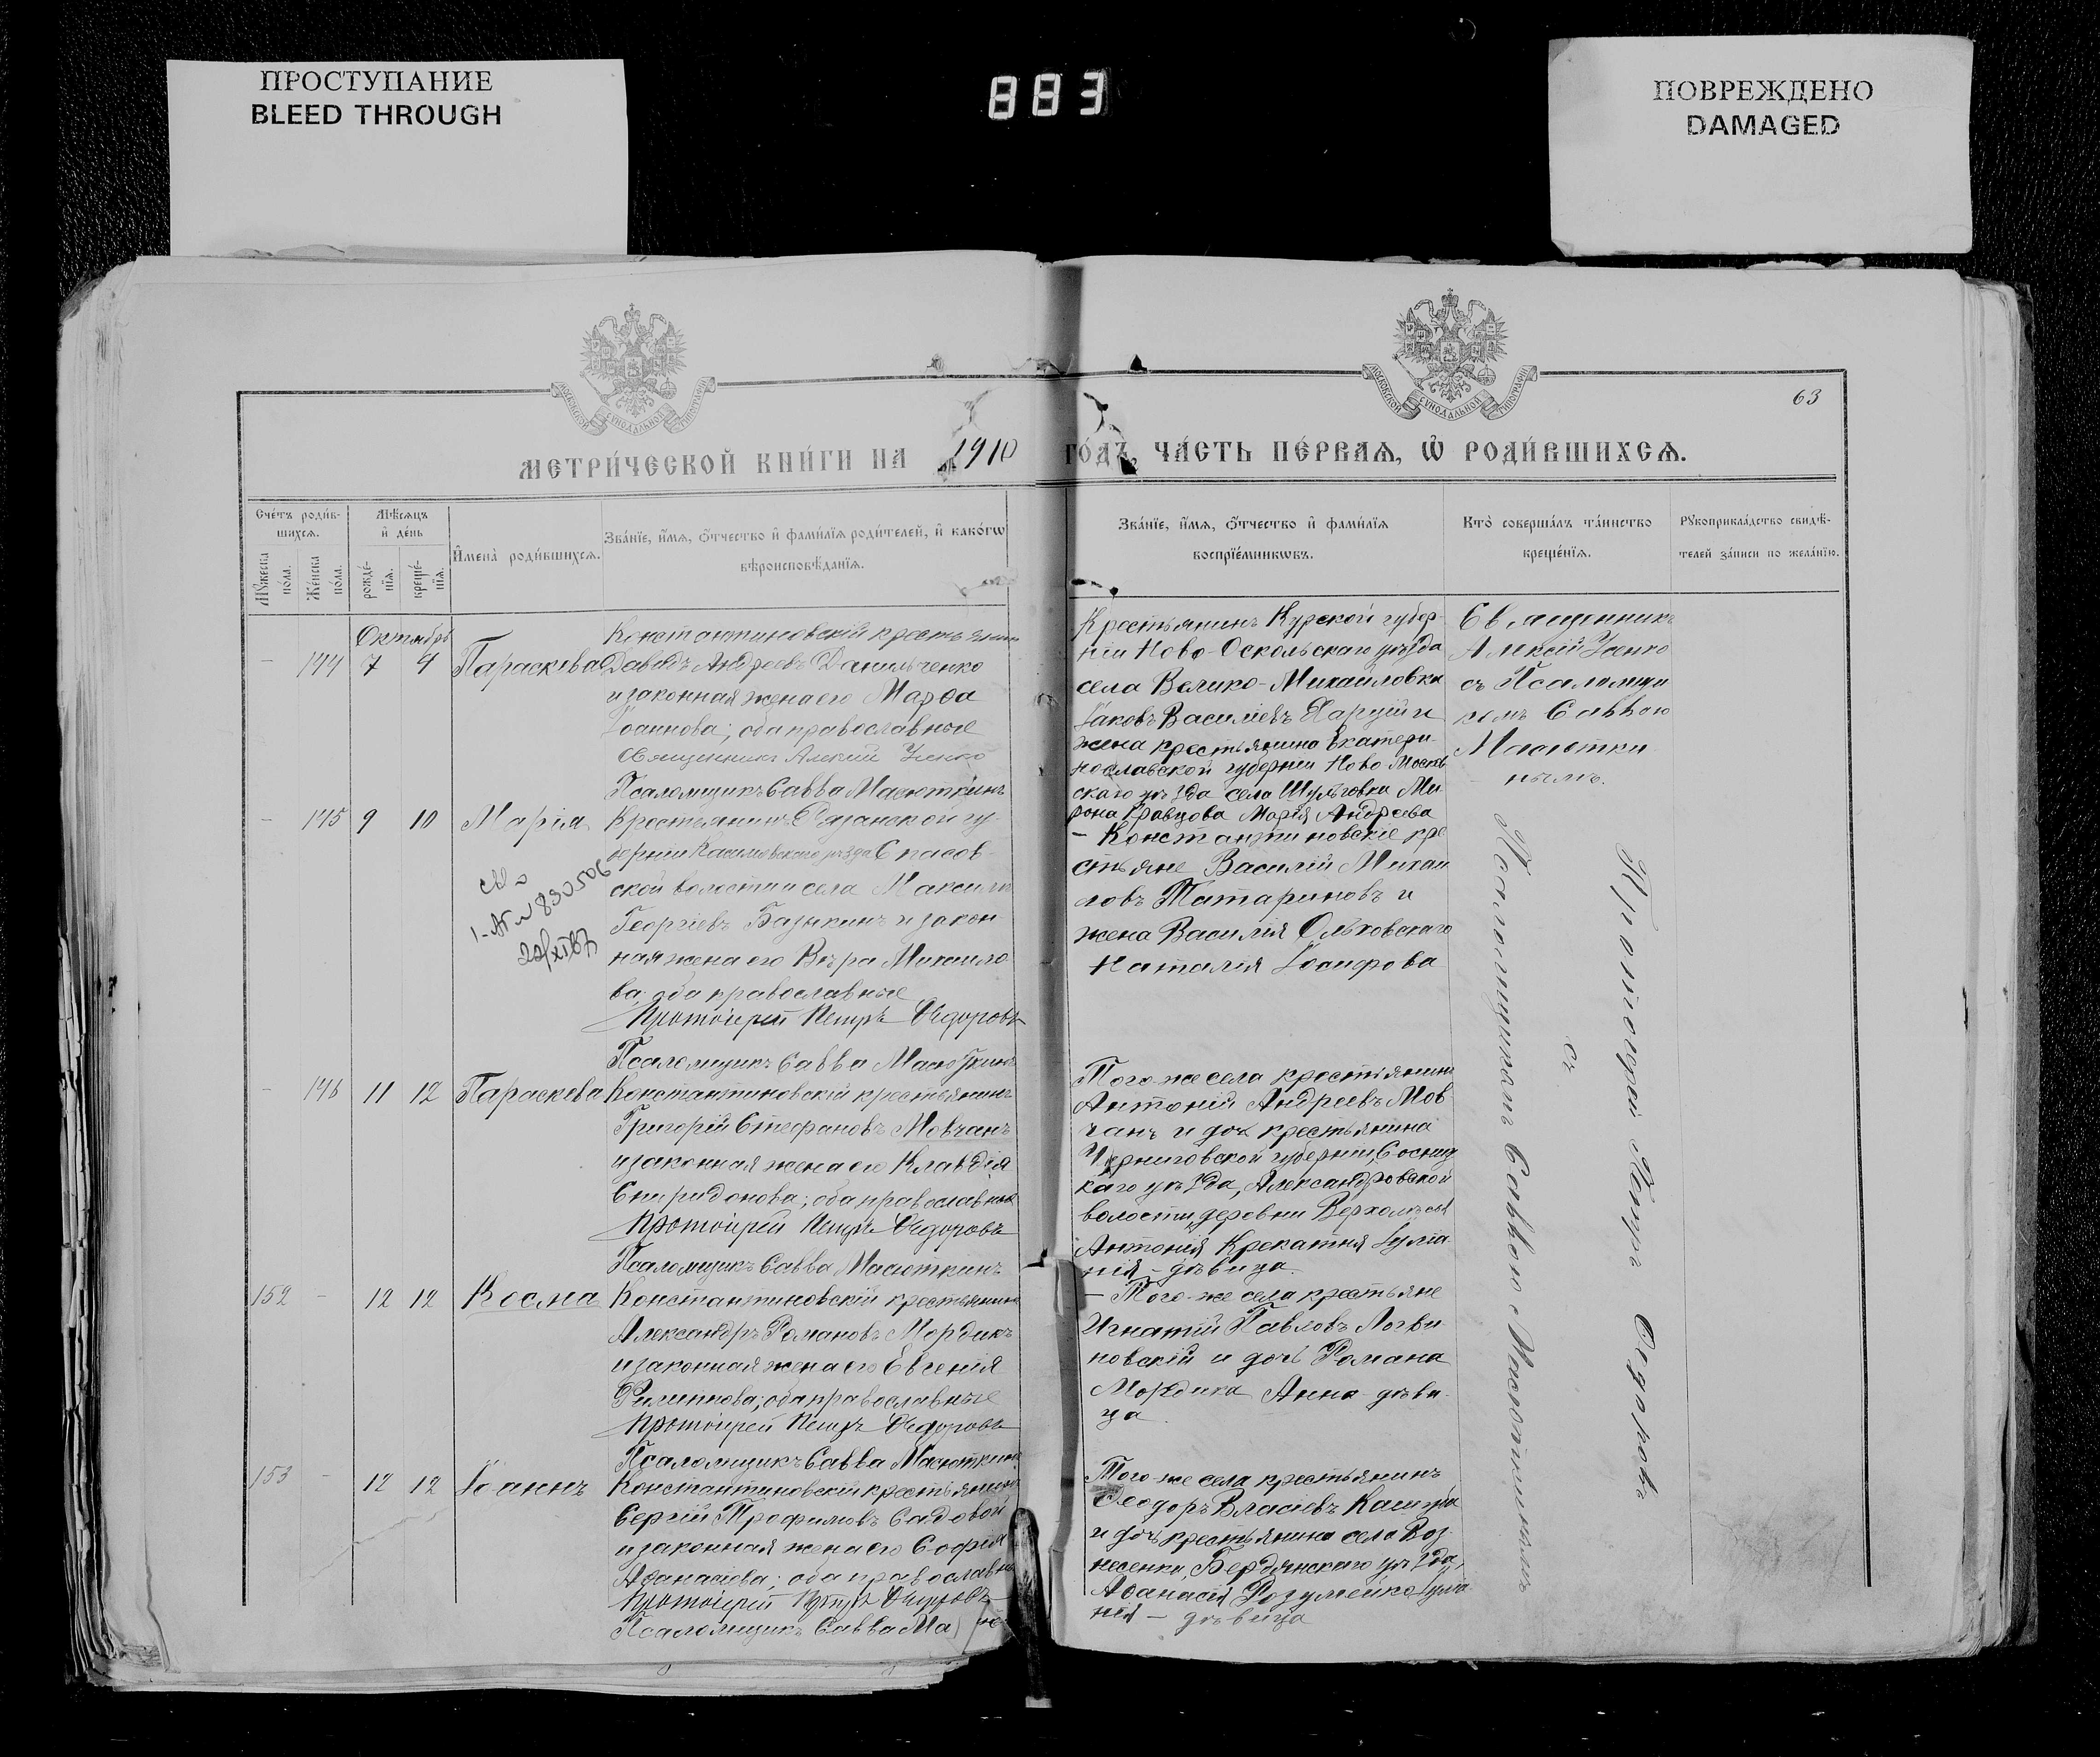 ПРОСТУПАНИЕ
BLEED THROUGH
883
ПОВРЕЖДЕНО
DAMAGED
МОСКОВСКОЙ СѴНОДАЛЬНОЙ ТИПОГРАФІИ
МОСКОВСКОЙ СѴНОДАЛЬНОЙ ТИПОГРАФІИ
63
МЕТРИ́ЧЕСКОЙ КНИ́ГИ НА 1910 ГО́ДЪ, ЧА́СТЬ ПЕ́РВАѦ, Ѡ҆ РОДИ́ВШИХСѦ.
Сче́тъ роди́в-
шихсѧ.
Мꙋ́жеска по́ла.
Же́нска по́ла.
Мѣ́сѧцъ
и҆ де́нь
рожде́-
нїѧ.
креще́-
нїѧ.
И҆мена̀ роди́вшихсѧ.
Зва́нїе, и҆́мѧ, ѻ҆́тчество и҆ фами́лїѧ роди́телей, и҆ како́гѡ
вѣроисповѣ́данїѧ.
Зва́нїе, и҆́мѧ, ѻ҆́тчество и҆ фами́лїѧ
воспрїе́мникѡвъ.
Кто̀ соверша́лъ та́инство
креще́нїѧ.
Рꙋкоприкла́дство свидѣ́-
телей за́писи по жела́нїю.
Октябрь
144 7 9 Параскева
Константиновскій крестьянинъ
Давидъ Андреевъ Данильченко
и законная жена его Марѳа
Іоаннова; оба православные
Священникъ Алексій Усенко
Псаломщикъ Савва Масюткинъ
Крестьянинъ Курской губер-
ніи Ново-Оскольскаго уѣзда
села Велико-Михайловки
Іаковъ Василіевъ и
жена крестьянина Екатери-
нославской губерніи Ново Москов
скаго уѣзда села Шульговки Ми
рона Кравцова Марія Андреева
Священникъ
Алексій Усенко
съ Псаломщи
комъ Саввою
Масютки
нымъ.
145 9 10 Марія
I-АГ № 830506
Крестьянинъ Рязанской гу-
берніи Касимовскаго уѣзда Спасов-
ской волости и села Максимъ
Георгіевъ Базыкинъ и закон-
ная жена его Вѣра Михайло
ва; оба православные
Протоіерей Петръ Ѳедоровъ
Псаломщикъ Савва Масюткинъ
– Константиновскіе кре
стьяне Василій Михаи
ловъ Татариновъ и
жена Василія Ольховскаго
Наталія Іосифова
146 11 12 Параскева
Константиновскій крестьянинъ
Григорій Стефановъ Мовчанъ
и законная жена его Клавдія
Спиридонова; оба православные
Протоіерей Петръ Ѳедоровъ
Псаломщикъ Савва Масюткинъ
Того-же села крестьянинъ
Антоній Андреевъ Мов
чанъ и дочь крестьянина
Черниговской губерніи, Сосниц
каго уѣзда, Александровской
волости, деревни
Антонія Крекатня Іуліа
нія – дѣвица.
152 – 12 12 Косма
Константиновскій крестьянинъ
Александръ Романовъ Мордикъ
и законная жена его Евгенія
Филиппова; оба православные
Протоіерей Петръ Ѳедоровъ
Псаломщикъ Савва Масюткинъ
– Того-же села крестьяне
Игнатій Павловъ Логви-
новскій и дочь Романа
Мордика Анна – дѣви-
ца.
153 – 12 12 Іоаннъ
Константиновскій крестьянинъ
Сергій Трофимовъ Садовой
и законная жена его Софія
Аѳанасіева; оба православные
Протоіерей Петръ Ѳедоровъ
Псаломщикъ Савва Ма
Того-же села крестьянинъ
Ѳеодоръ Власіевъ
и дочь крестьянина села Воз-
несенки, Бердянскаго уѣзда,
Аѳанасія Розумейко Іуліа-
нія – дѣвица
Протоіерей Петръ Ѳедоровъ
съ
Псаломщикомъ Саввою Масюткинымъ